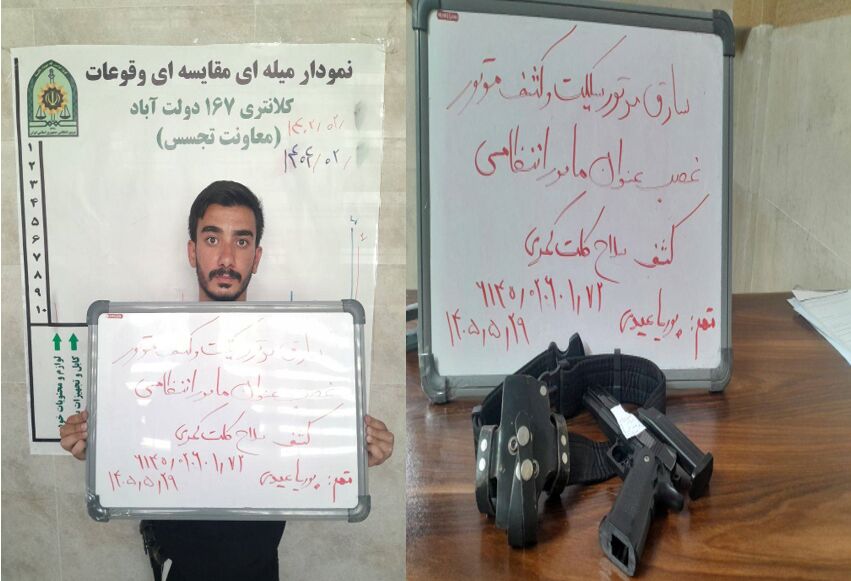 نمودار میله ای مقایسه ای وقوعات
کلانتری ۱۶۷ دولت آباد
(معاونت تجسس)
۱۴۰۲/۰۲/
۱۴۰۴/۰۲/
1
2
3
4
5
6
7
8
9
10
لوازم و محتویات خودرو
کابل و تجهیزات
سارق موتور سیکلت و کشف موتور
غصب عنوان مامور انتظامی
کشف سلاح کلت کمری
متهم: پوریا عبیدی
۱۴۰۵,۵,۲۹
سارق موتور سیکلت و کشف موتور
غصب عنوان مامور انتظامی
کشف سلاح کلت کمری
متهم: پوریا عبیدی
۱۴۰۵,۵,۲۹